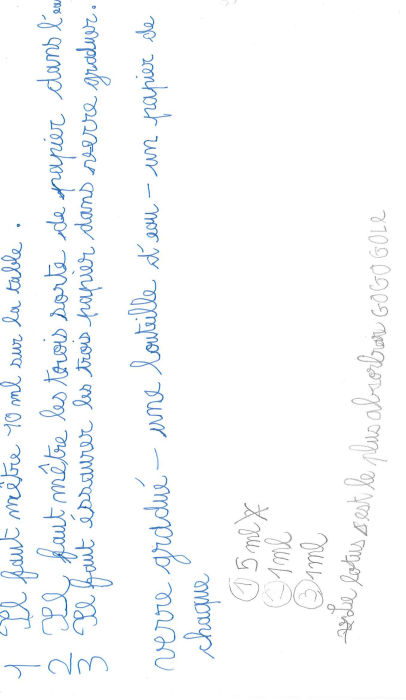 1 Il faut mêtre 10 ml sur la table.
2 Il faut mêtre les trois sorte de papier dans l'eau
3 Il faut éssaurer les trois papier dans verre graduer.
verre gradué - une bouteille d'eau - un papier de
chaque
① 5 ml X
② 1ml
③ 1ml
Le lotus est le plus absorban GOGOGOLE